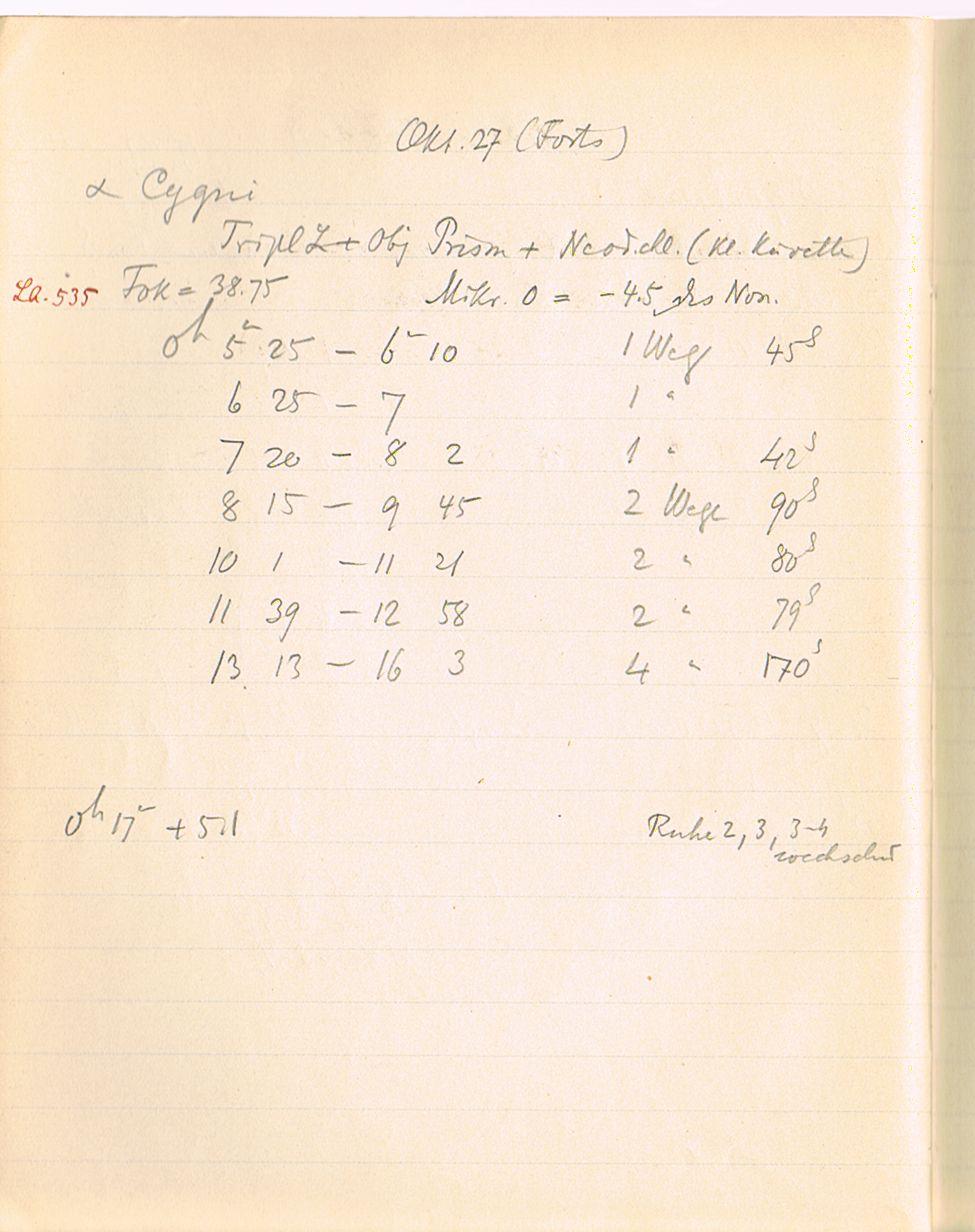 Okt. 27 (Forts)
α Cygni
Tripl Z + Obj Prism + Neod.chl. (kl. Küvette)
La. 535 Fok = 38.75 Mikr. 0 = -4.5 des Non.
0h 5m 25 — 6m 10 1 Weg 45s
6 25 — 7 1 "
7 20 — 8 2 1 " 42s
8 15 — 9 45 2 Wege 90s
10 1 — 11 21 2 " 80s
11 39 — 12 58 2 " 79s
13 13 — 16 3 4 " 170s
0h 17m Ruhe 2, 3, 3-4
wechselnd